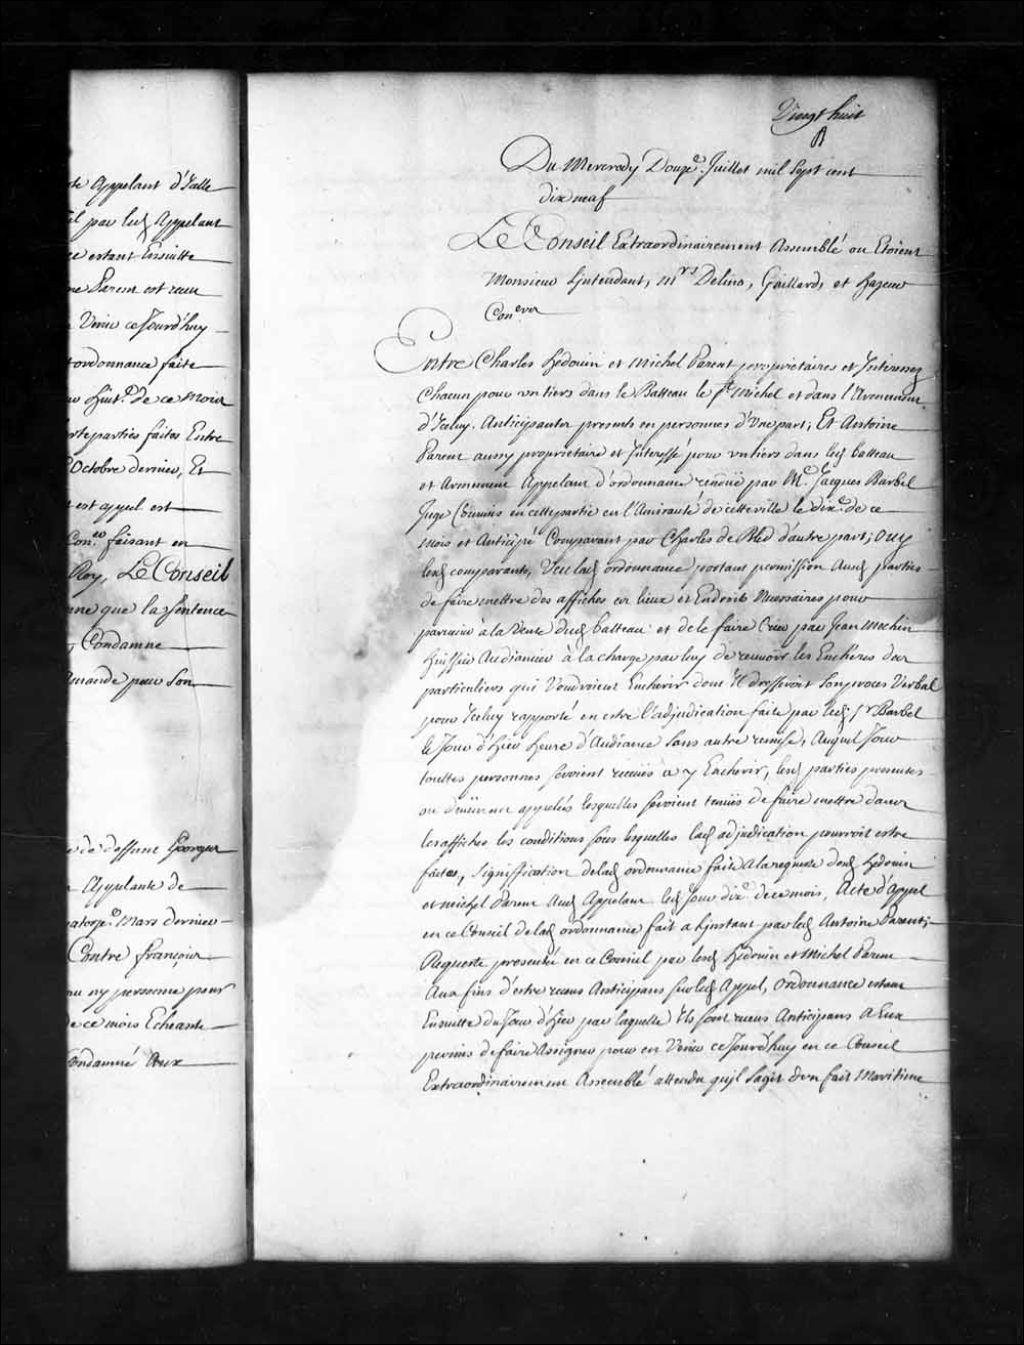 te Appelant d'Icelle
il par led. Appelant
ce estant Ensuitte
ne Parent est receu
Venir ce Jourd'huy
ordonnance faite
de ce mois
parties faites Entre
Octobre dernier, Et
est appel est
Con.er faisant en
Roy, Le Conseil
ne que la sentence
Condamne
amande pour son
de deffunt George
Appelante de
atorze.e Mars dernier
Contre françois
ou ny personne pour
de ce mois Echeante
Condamné aux
Vingt huit
Du Mercredy Douze.e Juillet mil sept cent
dix neuf
Le Conseil Extraordinairement Assemblé ou Etoient
Monsieur Lintendant, mrs Delino, Gaillard, et hazeur
Con.ers
Entre Charles hedouin et michel Parent proprietaires et Interessez
Chacun pour un tiers dans le Batteau le St. Michel et dans l'Armement
d'Iceluy. Anticipants presents en personnes d'Une part; Et Antoine
Parent aussy proprietaire et Interessé pour un tiers dans led. batteau
et Armement Appelant d'ordonnance rendüe par Me. Jacques Barbel
Juge Commis en cette partie en l'Amirauté de cette ville le dix.e de ce
mois et Anticipé Comparant par Charles de Bled d'autre part; Ouy
lesd. comparants, Veu lad. ordonnance portant permission Ausd. parties
de faire mettre des affiches ez lieux et Endroits Necessaires pour
parvenir à la Vente dud. batteau et de le faire Crier par Jean Mechin
huissier Audiancier à la charge par luy de recevoir les Enchéres des
particuliers qui Voudroient Encherir dont Il dresseroit son proces Verbal
pour Iceluy rapporté en estre l'adjudication faite par led. Sr. Barbel
le Jour d'hier heure d'Audiance sans autre remise, Auquel Jour
touttes personnes seroient receües a y Encherir, lesd. parties presentes
ou deüement appelées lesquelles seroient tenües de faire mettre dans
les affiches les conditions sous lesquelles lad. adjudication pourroit estre
faites, signiffication de lad. ordonnance faite A la requeste desd. hedouin
et michel Parent Aud. Appelant led. Jour dix.e de ce mois, Acte d'appel
en ce Conseil de lad. ordonnance fait a Linstant par led. Antoine Parent;
Requeste presentée en ce Conseil par lesd. hedouin et Michel Parent
Aux fins d'estre receus Anticipans sur led. Appel, ordonnance estant
Ensuitte du Jour d'hier par laquelle Ils sont receus Anticipans A Eux
permis de faire Assigner pour en Venir ce Jourd'huy en ce Conseil
Extraordinairement Assemblé attendu qu'jl sagit d'un fait Maritime